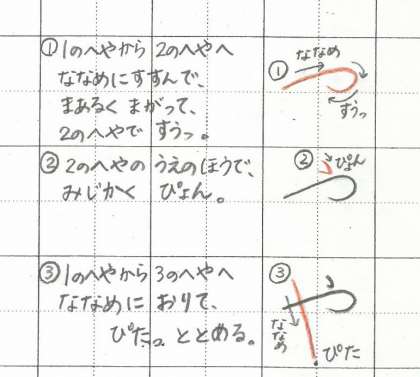 ①1のへやから 2のへやへ
ななめにすすんで、
まあるく まがって、
2のへやで すうっ。
① ななめ
すうっ
②2のへやの うえのほうで、
みじかく ぴょん。
② ぴょん
③1のへやから 3のへやへ
ななめに おりて、
ぴたっ ととめる。
③
ななめ
ぴた